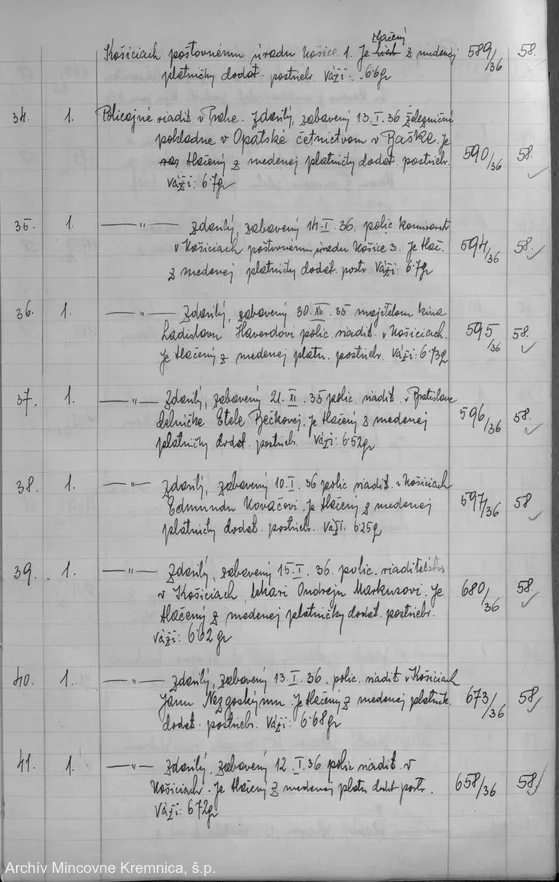 tlačený
Košiciach poštovnému úradu Košice 1. Je z medenej 589/36 58.
platničky dodat. postriebr. Váži: 6·6gr
34. 1. Policajné riadit. v Prahe. Zdarilý, zabavený 13.I.36 železničnej
pokladne v Opatské četníctvom v Baška. Je 590/36 58.
tlačený z medenej platničky dodat. postriebr.
Váži: 6·7gr
35. 1. —"— Zdarilý, zabavený 14.I.36. polic. komisariát
v Košiciach poštovnému úradu Košice 3. Je tlač. 594/36 58.
z medenej platničky dodat. postr. Váži: 6·7gr
36. 1. —"— Zdarilý, zabavený 30.XII.35 majiteľom kina
Ladislavom Haverdovi polic. riadit. v Košiciach. 595/36 58.
Je tlačený z medenej platn. postriebr. Váži: 6·73gr
37. 1. —"— Zdarilý, zabavený 21.XI.35 polic. riadit. v Bratislave
Etele Bečkovej. Je tlačený z medenej 596/36 58.
platničky dodat. postriebr. Váži: 6·52gr
38. 1. —"— Zdarilý, zabavený 10.I.36 polic. riadit. v Košiciach
Edmundu Kováčovi. Je tlačený z medenej 597/36 58
platničky dodat. postriebr. Váži: 6·25g
39. 1. —"— Zdarilý, zabavený 15.I.36. polic. riaditeľstvo
v Košiciach lekárovi Ondrejovi Markusovi. Je 680/36 58.
tlačený z medenej platničky dodat. postriebr.
Váži: 6·62gr
40. 1. —"— Zdarilý, zabavený 13.I.36. polic. riadit. v Košiciach
Jánu . Je tlačený z medenej platničk. 673/36 58
dodat. postriebr. Váži: 6·68gr
41. 1. —"— Zdarilý, zabavený 12.I.36 polic. riadit. v
Košiciach. Je tlačený z medenej platn. dodat. postr. 658/36 58
Váži: 6·72gr
Archív Mincovne Kremnica, š.p.